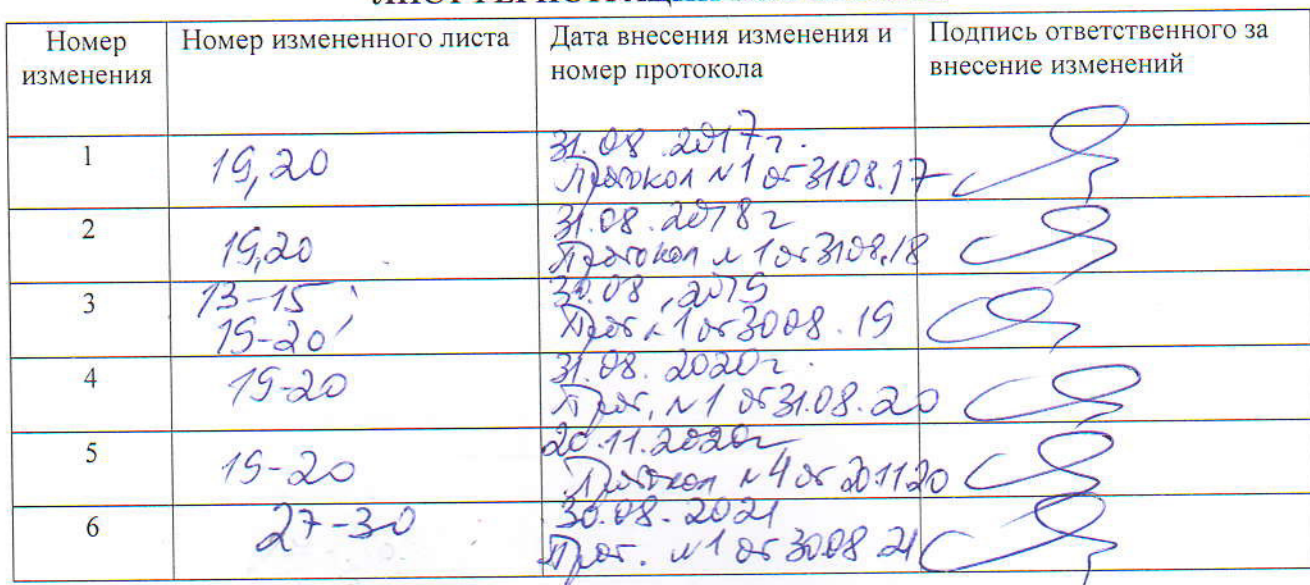 Номер изменения
Номер измененного листа
Дата внесения изменения и номер протокола
Подпись ответственного за внесение изменений
1
19,20
31.08.2017г.
Протокол №1 от 31.08.17
2
19,20
31.08.2018г
Протокол №1 от 31.08.18
3
13-15
19-20
30.08.2019
Прот №1 от 30.08.19
4
19-20
31.08.2020г.
Прот. №1 от 31.08.20
5
19-20
20.11.2020г
Протокол №4 от 20.11.20
6
27-30
30.08.2021
Прот. №1 от 30.08 21